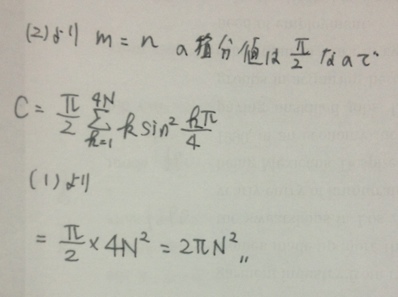 (2)より m = n の積分値は π/2 なので
C = π/2 Σ_{k=1}^{4N} k sin² kπ/4
(1)より
= π/2 × 4N² = 2πN² 〃